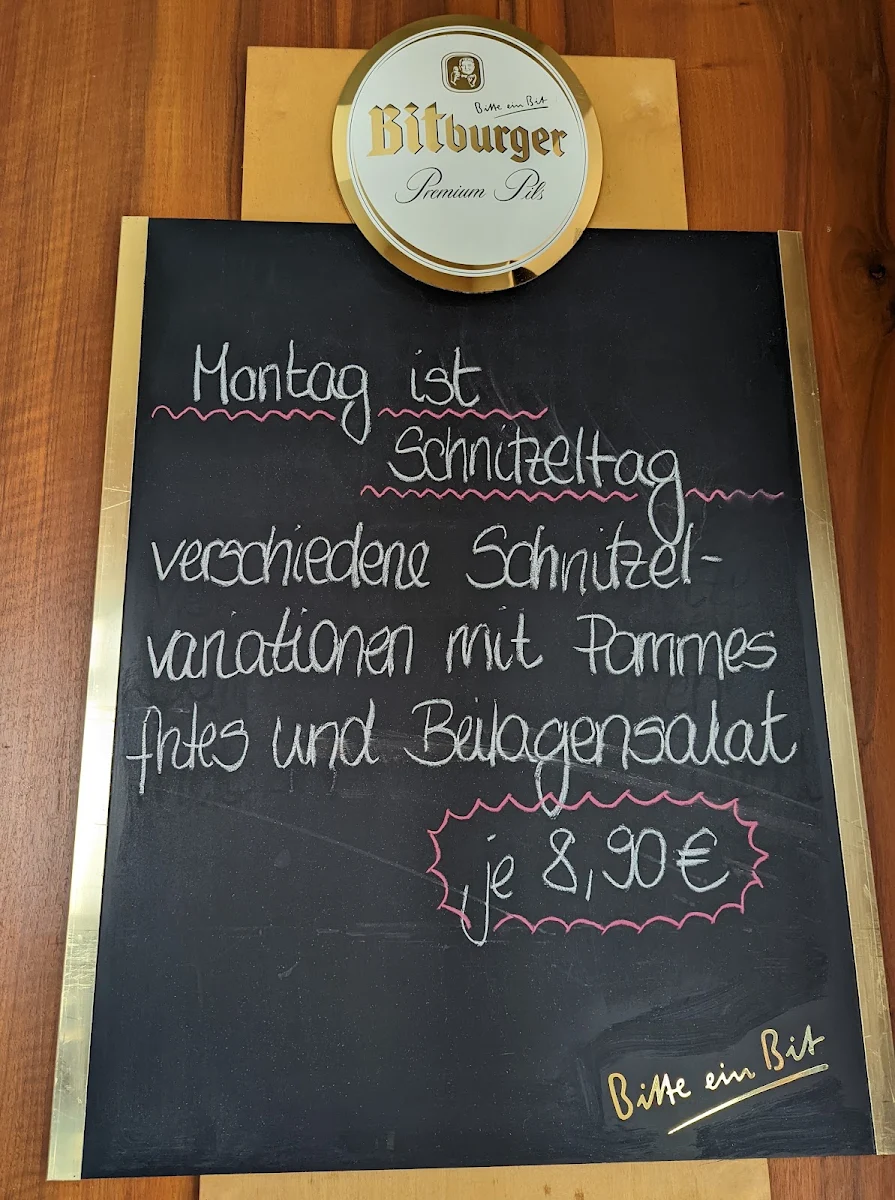 Bitte ein Bit
Bitburger
Premium Pils
Montag ist
Schnitzeltag
verschiedene Schnitzel-
variationen mit Pommes
frites und Beilagensalat
je 8,90€
Bitte ein Bit